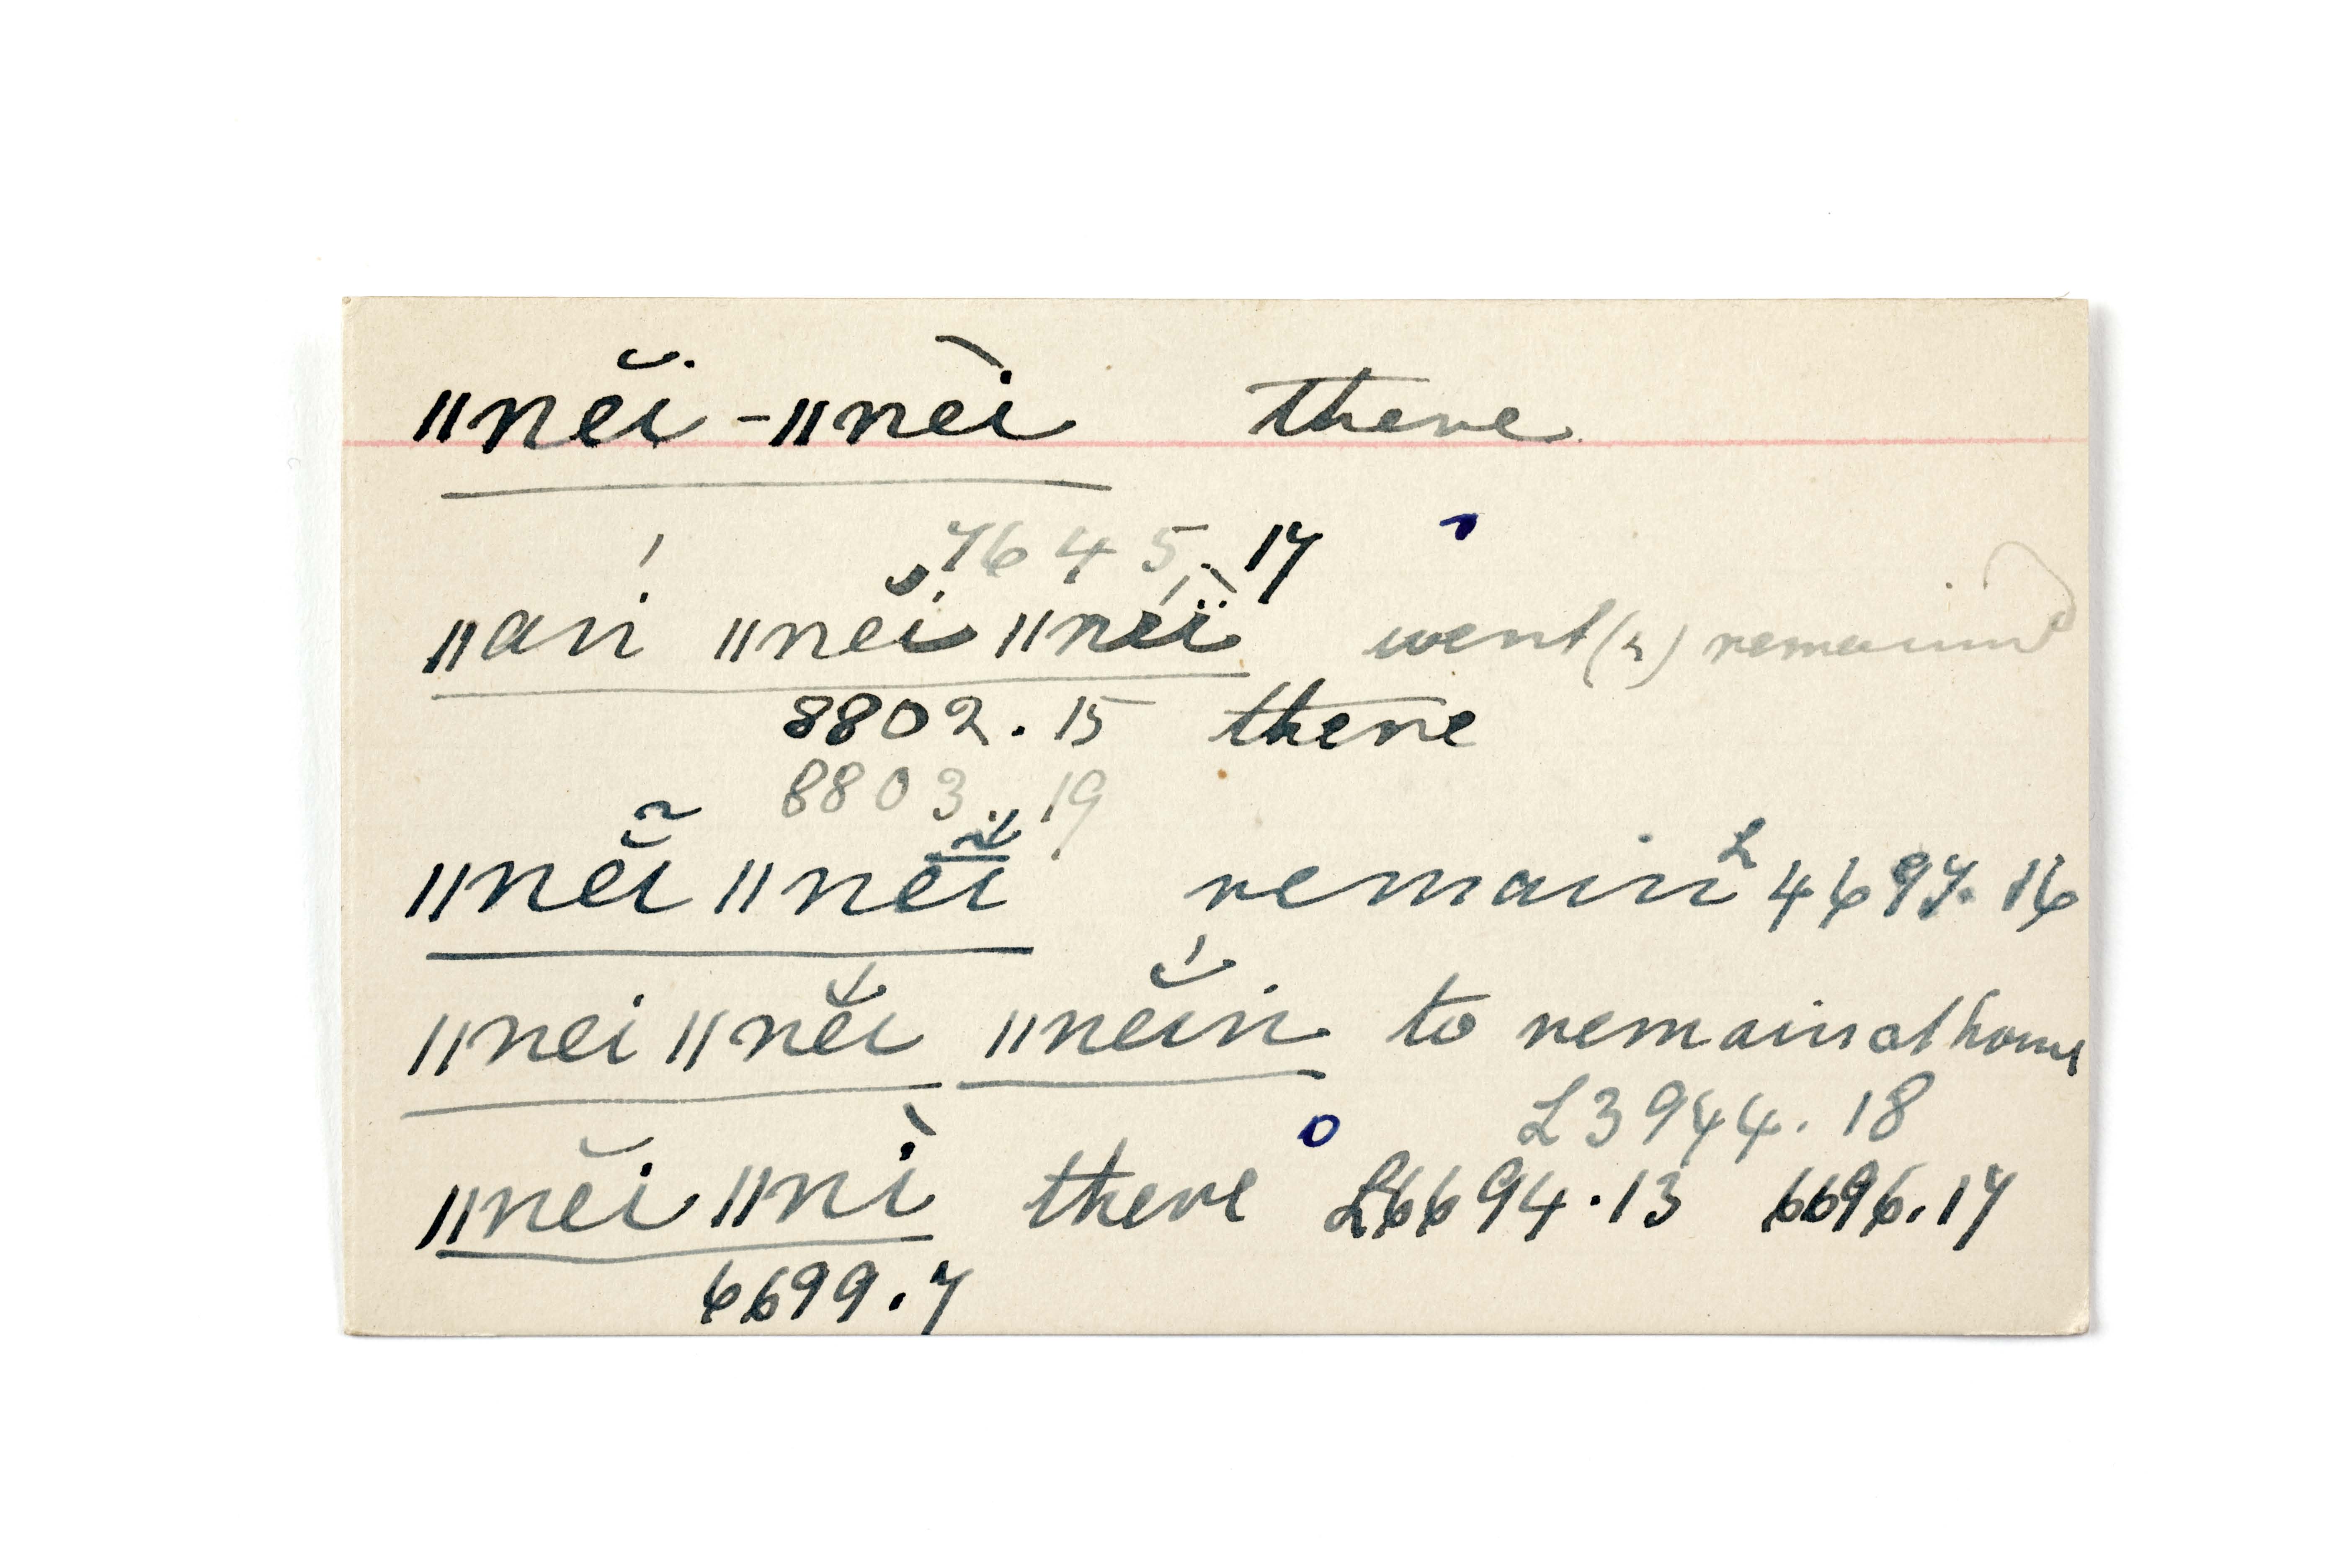 ǁnĕi-ǁnèi there
7645.17
ǁan ǁnĕi ǁnéï̀ went (&) remained
8802.15 there
8803.19
ǁnĕ̃i ǁnē̃i remain L 4697.16
ǁnei ǁnĕ́i ǁnĕ́in to remain at home
L 3944.18
ǁnĕi ǁnì there L6694.13 6696.17
6699.7